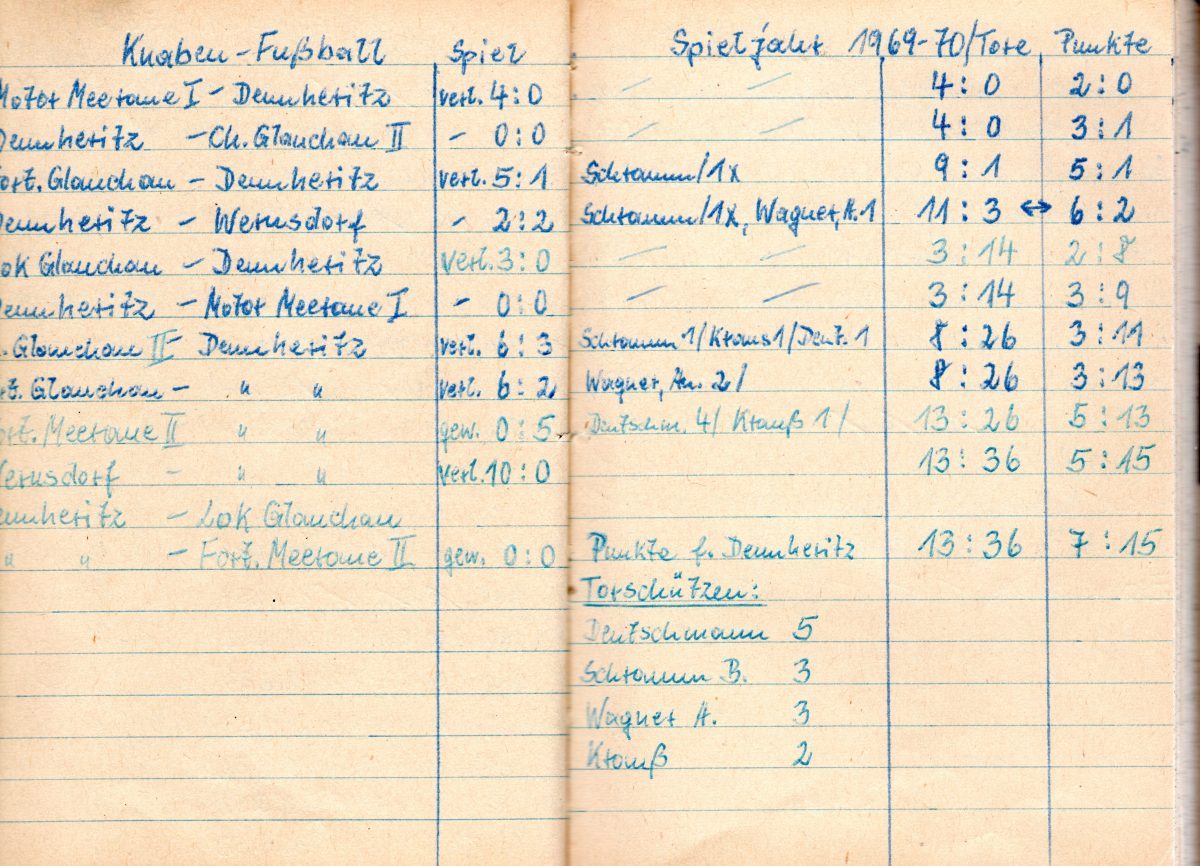 Knaben-Fußball Spiel Spieljahr 1969-70/Tore Punkte
Motor Meerane I - Dennheritz verl. 4:0 4:0 2:0
Dennheritz - Ch. Glauchau II - 0:0 4:0 3:1
ort. Glauchau - Dennheritz verl. 5:1 Schramm/1x 9:1 5:1
Dennheritz - Wernsdorf - 2:2 Schramm/1x, Wagner, A. 1 11:3 ↔ 6:2
ok Glauchau - Dennheritz verl. 3:0 3:14 2:8
Dennheritz - Motor Meerane I - 0:0 3:14 3:9
. Glauchau II - Dennheritz verl. 6:3 Schramm 1/Kraus 1/Deut. 1 8:26 3:11
rt. Glauchau - " " verl. 6:2 Wagner, An. 2/ 8:26 3:13
ort. Meerane II " " gew. 0:5 Deutschm. 4/ Krauß 1/ 13:26 5:13
Wernsdorf - " " verl. 10:0 13:36 5:15
ennheritz - Lok Glauchau
" " - Fort. Meerane II gew. 0:0 Punkte f. Dennheritz 13:36 7:15
Torschützen:
Deutschmann 5
Schramm B. 3
Wagner A. 3
Krauß 2